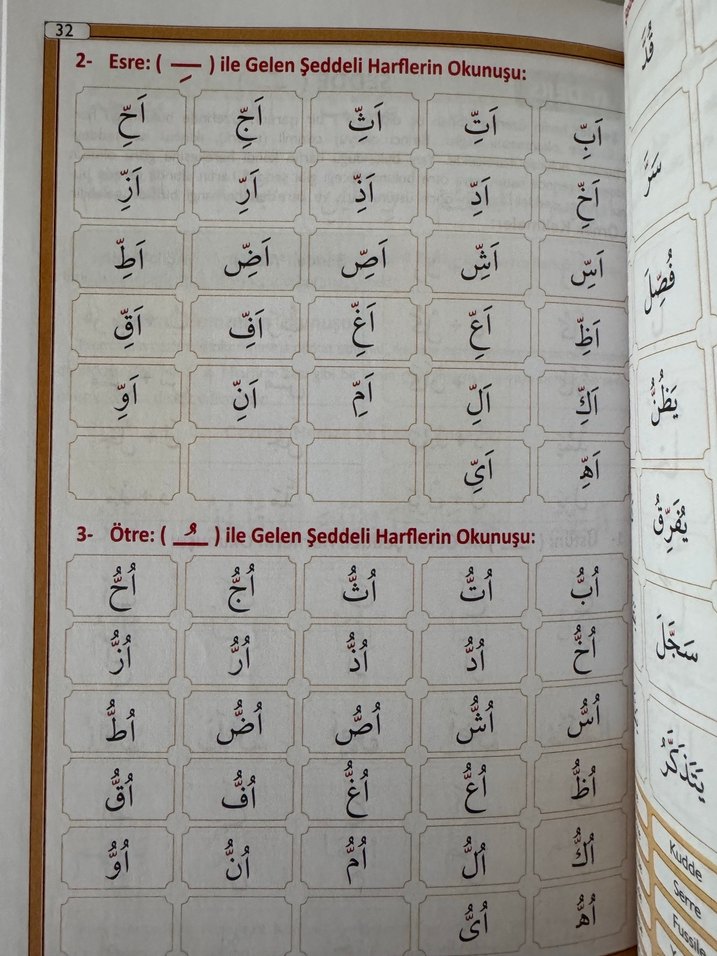 32
2- Esre: ( ـِ ) ile Gelen Şeddeli Harflerin Okunuşu:
اَبِّ اَتِّ اَثِّ اَجِّ اَحِّ
اَخِّ اَدِّ اَذِّ اَرِّ اَزِّ
اَسِّ اَشِّ اَصِّ اَضِّ اَطِّ
اَظِّ اَعِّ اَغِّ اَفِّ اَقِّ
اَكِّ اَلِّ اَمِّ اَنِّ اَوِّ
اَهِّ اَيِّ
3- Ötre: ( ـُ ) ile Gelen Şeddeli Harflerin Okunuşu:
اُبُّ اُتُّ اُثُّ اُجُّ اُحُّ
اُخُّ اُدُّ اُذُّ اُرُّ اُزُّ
اُسُّ اُشُّ اُصُّ اُضُّ اُطُّ
اُظُّ اُعُّ اُغُّ اُفُّ اُقُّ
اُكُّ اُلُّ اُمُّ اُنُّ اُوُّ
اُهُّ اُىُّ
سَرَّ
فُصِّلَ
يَظُنُّ
يُفَرِّقُ
سَجَّلَ
يَتَذَكَّرُ
Kudde
Serre
Fussile